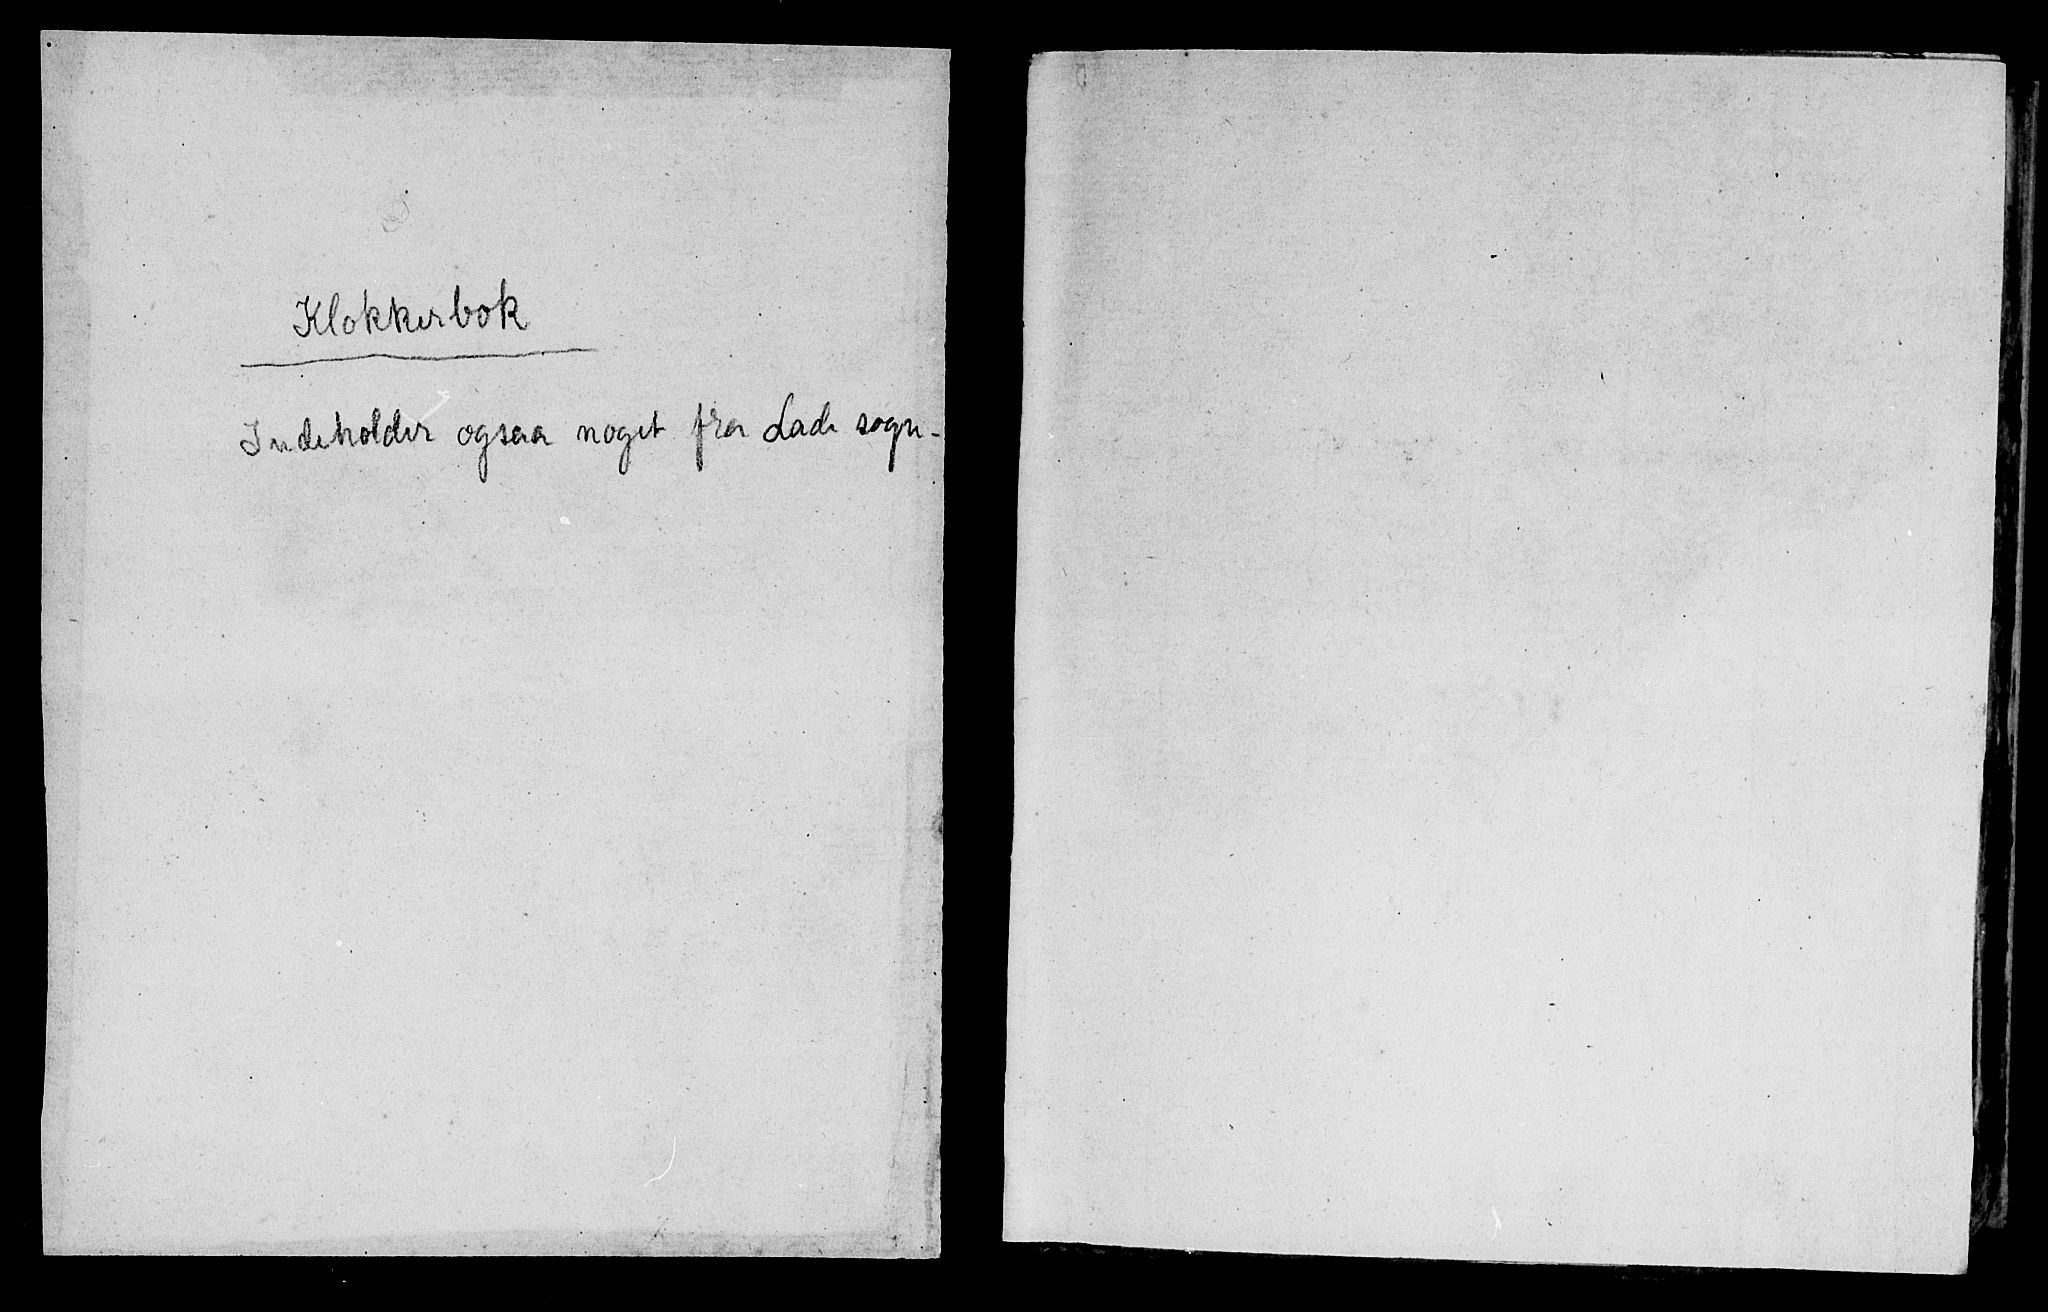 Klokkerbok
Indeholder ogsaa noget fra Lade sogn.